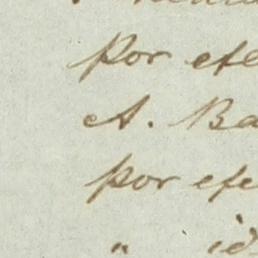 Por efe
A. Ba
Por efe
" id